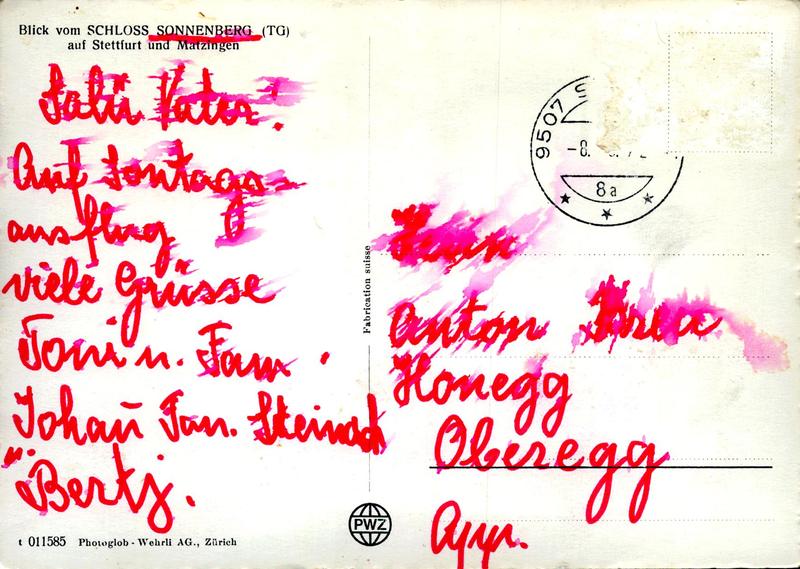 Blick vom SCHLOSS SONNENBERG (TG)
auf Stettfurt und Matzingen
Salü Vater!
Auf Sontags-
ausflug
viele Grüsse
Toni u. Fam.
Johañ Fan. Steinach
" Bertj.
t 011585 Photoglob - Wehrli AG., Zürich
Fabrication suisse
PWZ
9507
-8.
8a
Herrn
Anton
Honegg
Oberegg
App.